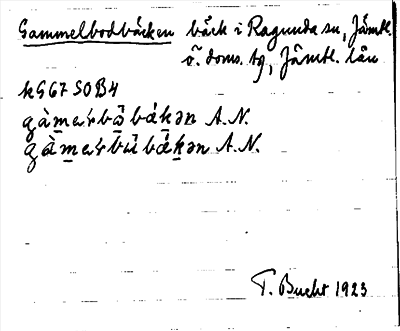 Gammelbodbäcken bäck i Ragunda sn, Jämtl.
ö. doms. tg, Jämtl. län
kG67SOB4
gàmaɹbū̀ bákən A.N.
gàmaɹbù bákən A.N.
T. Bucht 1923